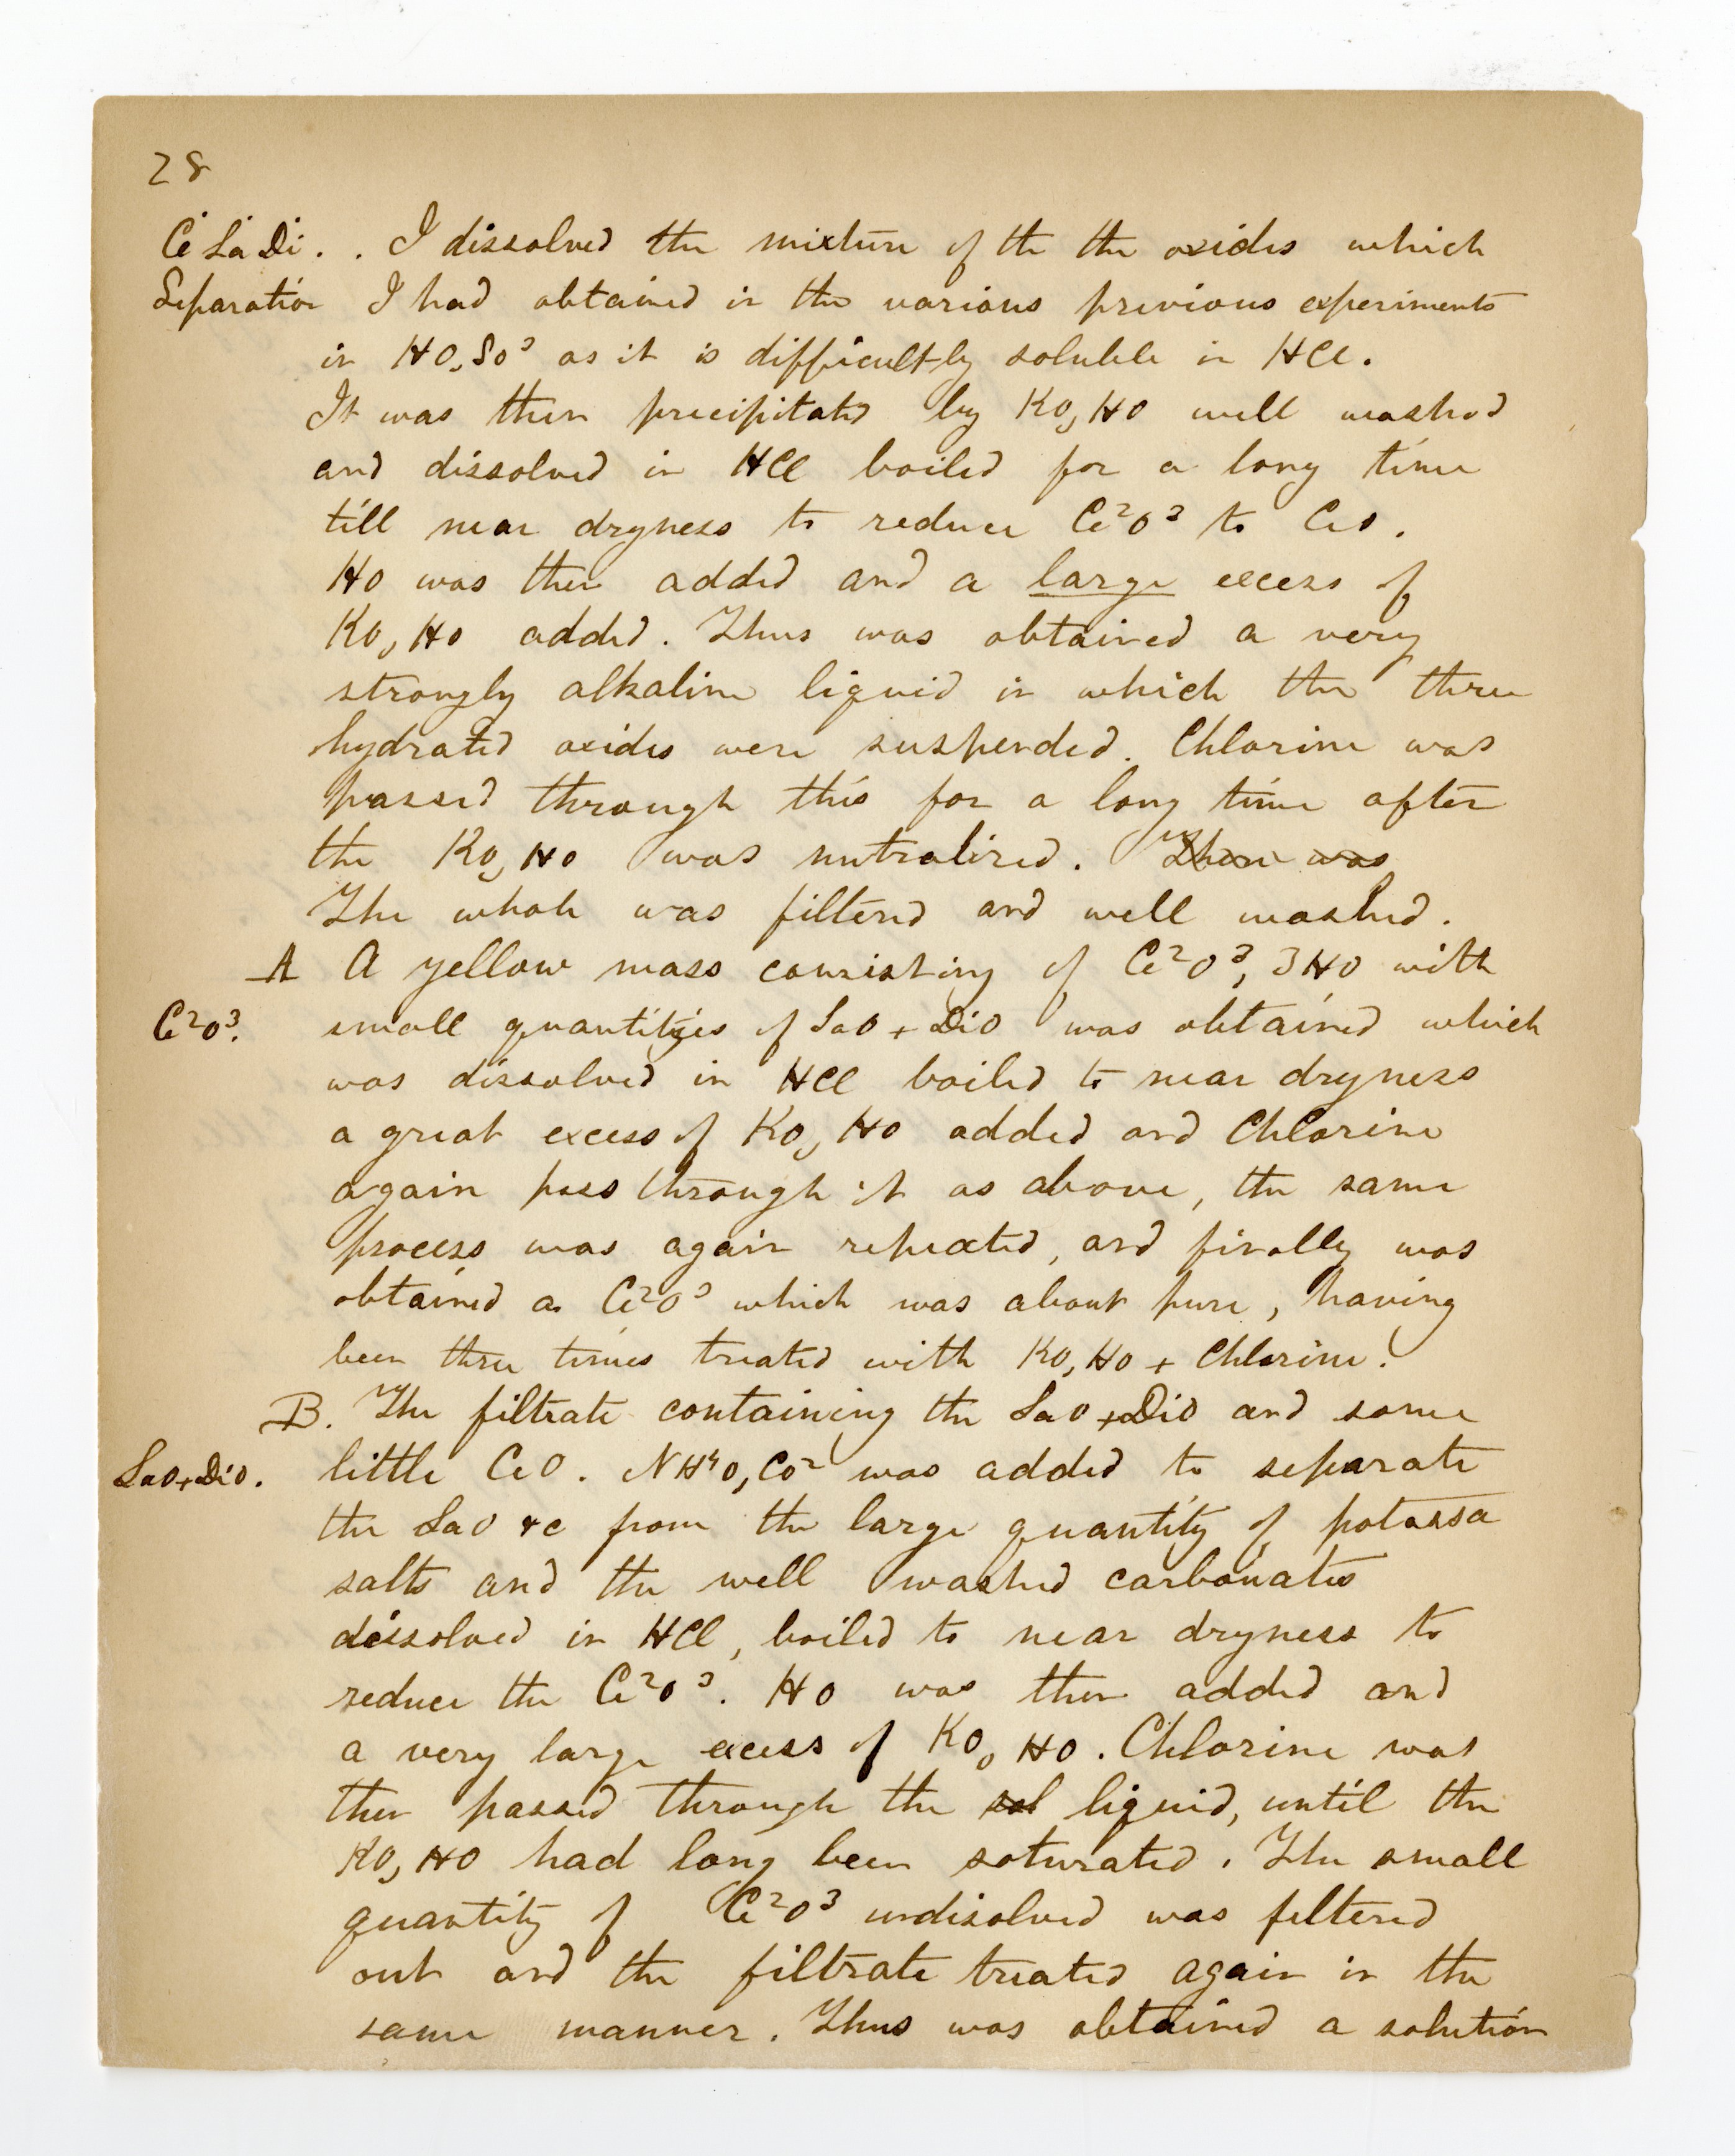 28
Ċe L̇a Ḋi . . I dissolved the mixture of the the oxides which
Separation I had obtained in the various previous experiments
in HO,SO³ as it is difficultly soluble in HCl.
It was then precipitated by KO,HO well washed
and dissolved in HCl boiled for a long time
till near dryness to reduce Ce²O³ to CeO.
HO was then added and a large excess of
KO,HO added. Thus was obtained a very
strongly alkaline liquid in which the three
hydrated oxides were suspended. Chlorine was
passed through this for a long time after
the KO,HO was nutralized. There was
The whole was filtered and well washed.
A A yellow mass consisting of Ce²O³,3HO with
Ce²O³. small quantities of LaO + DiO was obtained which
was dissolved in HCl boiled to near dryness
a great excess of KO,HO added and Chlorine
again pass through it as above, the same
process was again repeated, and finally was
obtained a Ce²O³ which was about pure, having
been three times treated with KO,HO + Chlorine.
B. The filtrate containing the LaO + DiO and some
LaO+DiO. little CeO. NH⁴O,CO² was added to separate
the LaO &c from the large quantity of potassa
salts and the well washed carbonates
dissolved in HCl, boiled to near dryness to
reduce the Ce²O³. HO was then added and
a very large excess of KO,HO. Chlorine was
then passed through the sol liquid, until the
KO,HO had long been saturated. The small
quantity of Ce²O³ undisolved was filtered
out and the filtrate treated again in the
same manner. Thus was obtained a solution